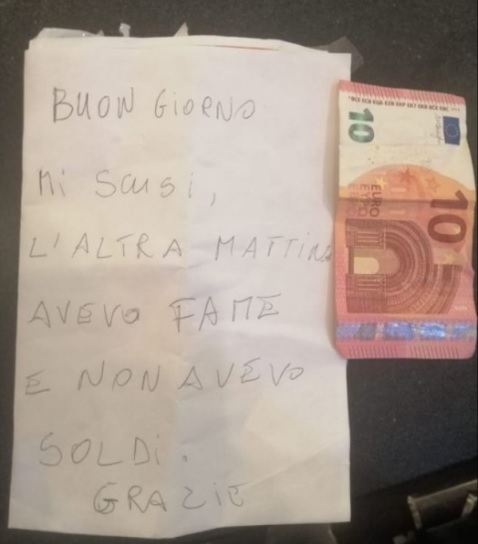 BUON GIORNO
Mi SCUSi,
L'ALTRA MATTINA
AVEVO FAME
E NON AVEVO
SOLDi.
GRAZIE
10
EURO
EYPΩ
10